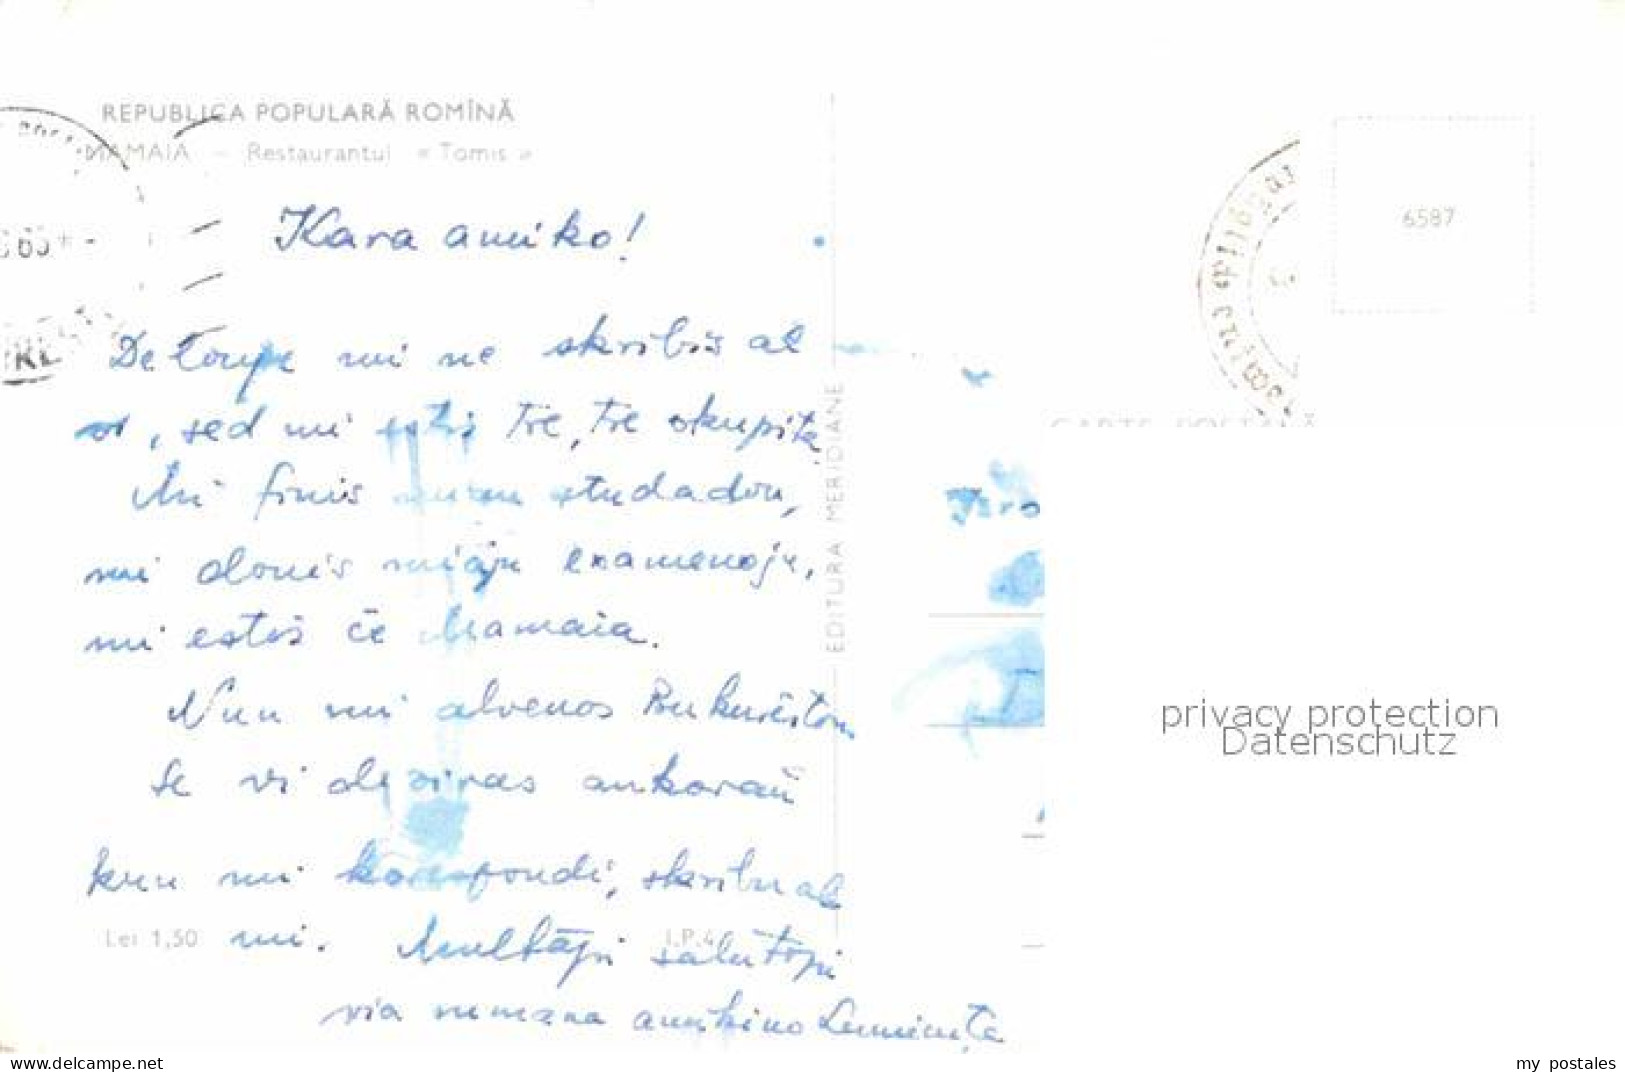 REPUBLICA POPULARĂ ROMÎNĂ
MAMAIA – Restaurantul « Tomis »
6587
Kara amiko!
De longe mi ne skribis al
vi, sed mi estis tre, tre okupita
Mi finis mian studadon,
mi donis miajn examenojn,
mi estis ĉe Mamaia.
Nun mi alvenos Bukureŝton
Se vi deziras ankoraŭ
kun mi korespondi, skribu al
mi. Multajn salutojn
via rumana amikino Luminiţa
Lei 1,50
I.P.4
EDITURA MERIDIANE
CARTE POŞTALĂ
privacy protection
Datenschutz
delcampe.net
my_postales